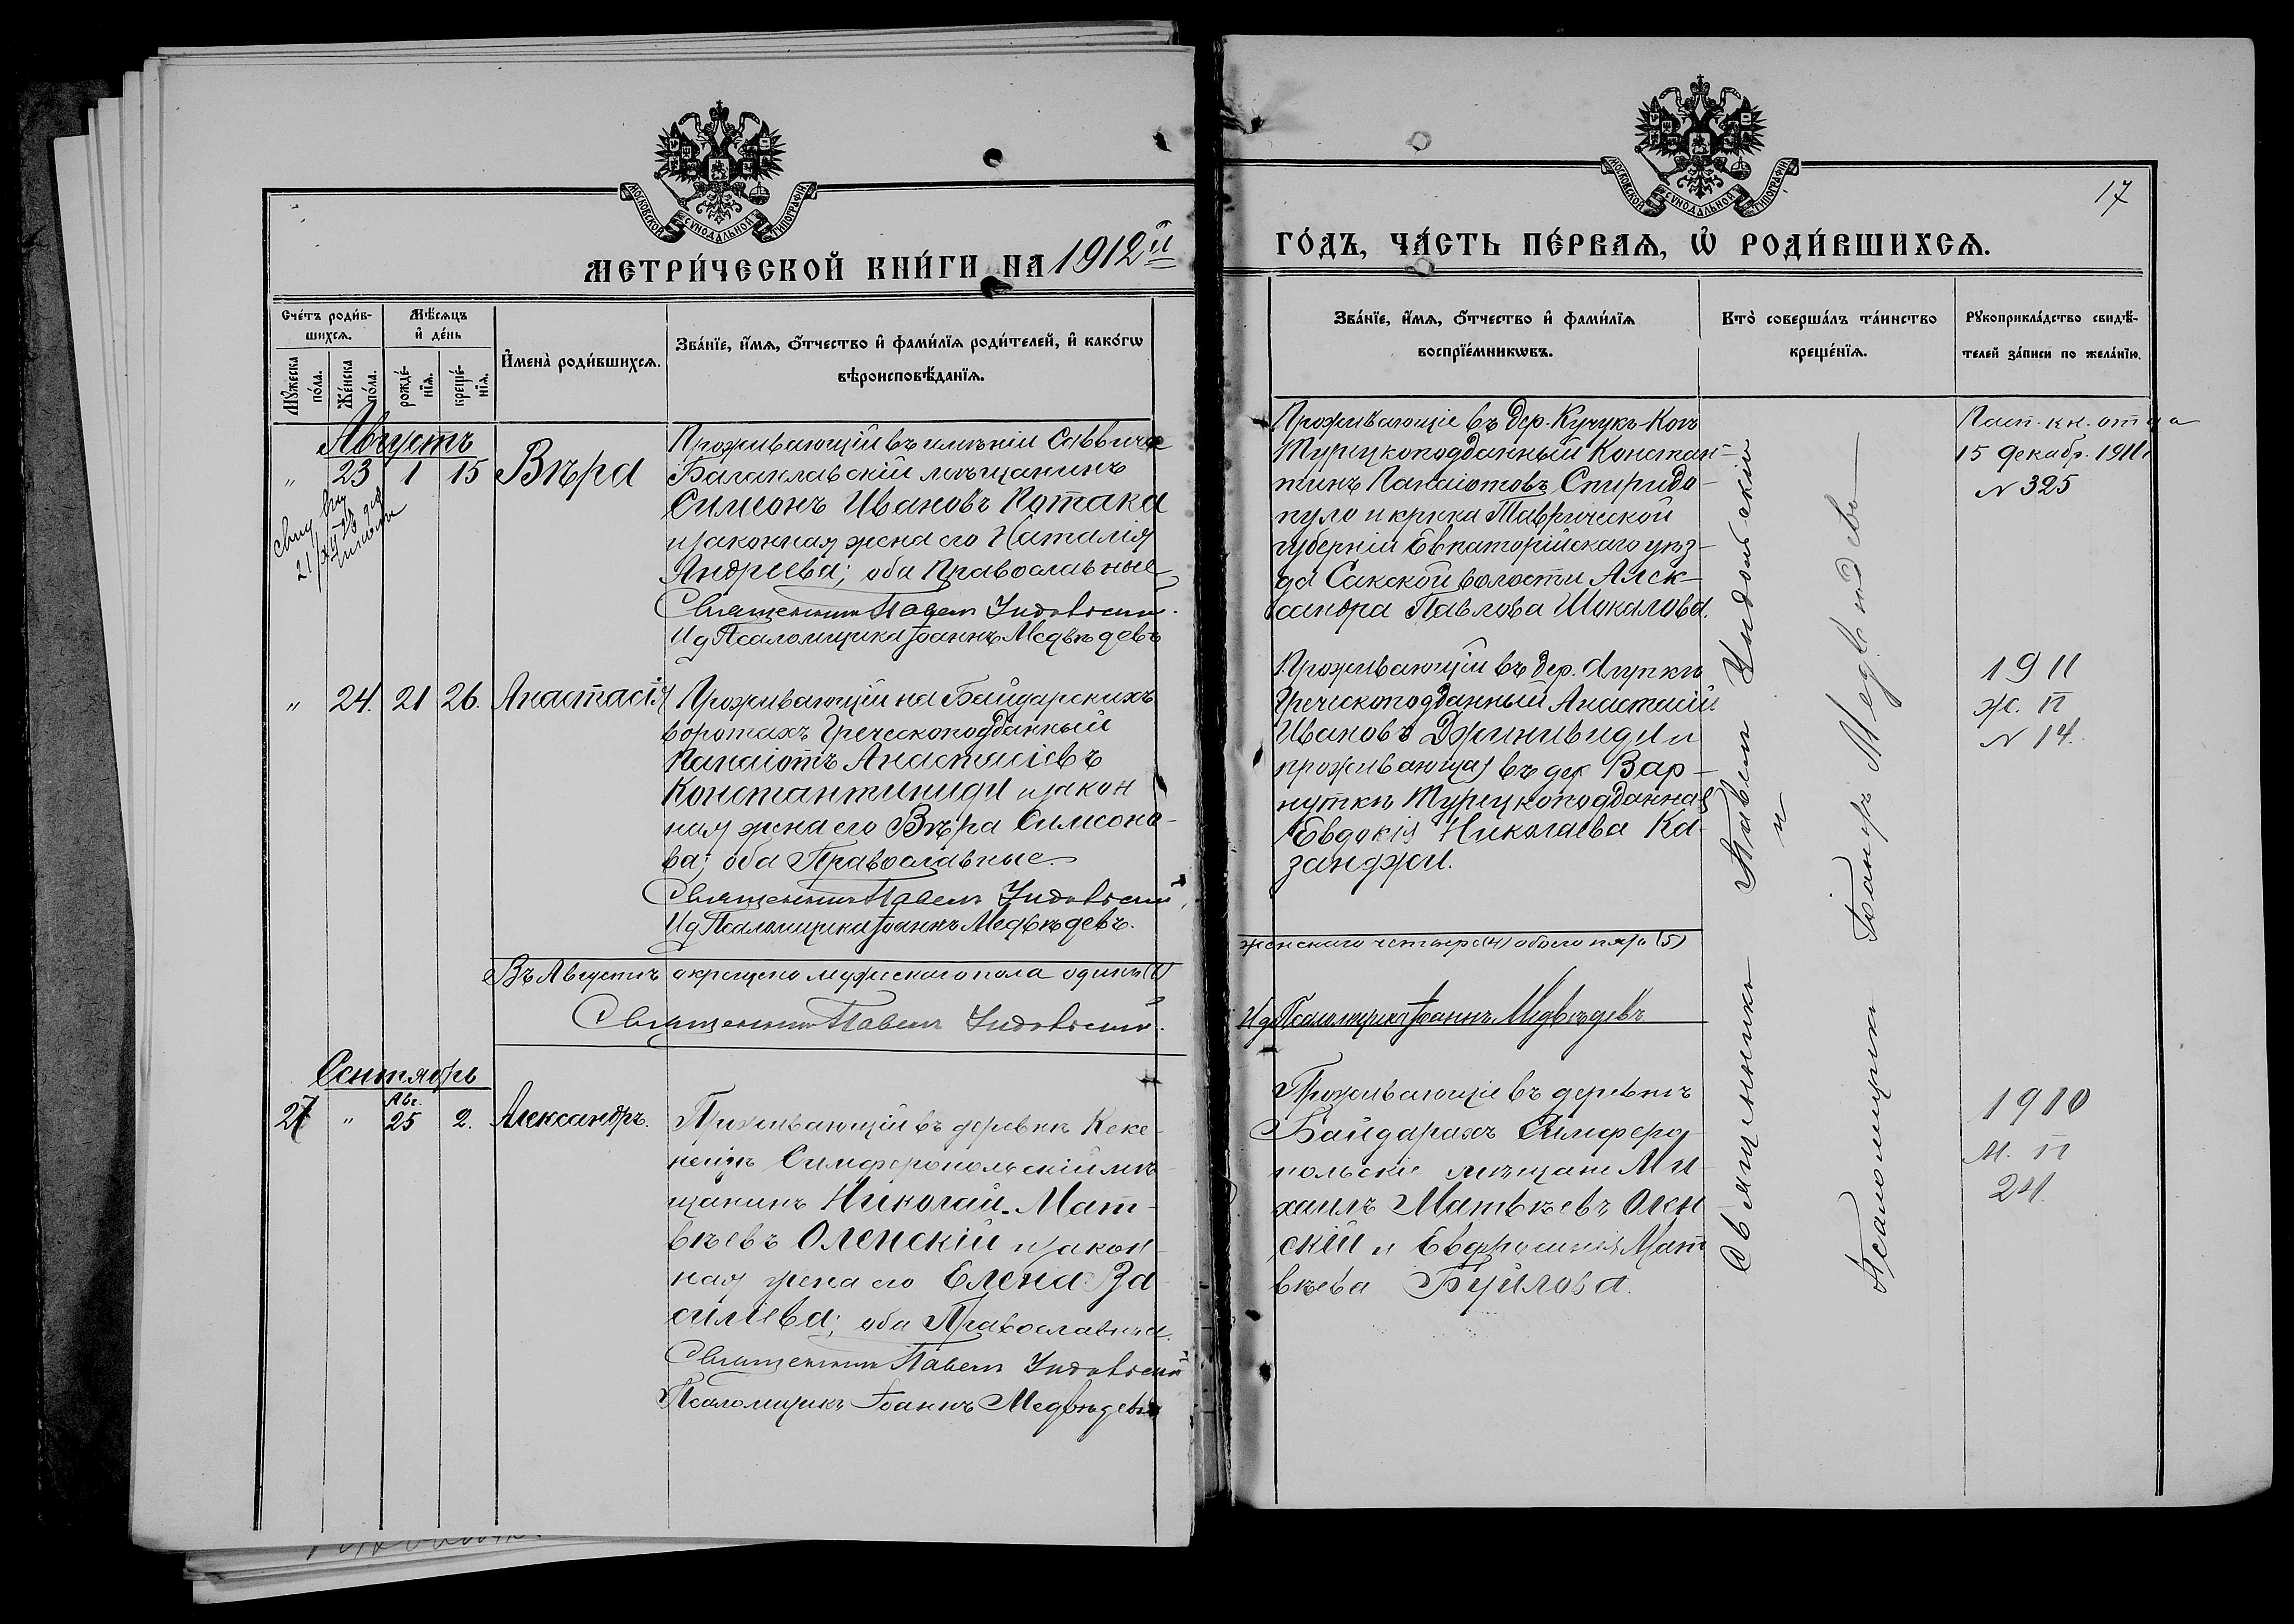 МОСКОВСКОЙ СѴНОДАЛЬНОЙ ТИПОГРАФІИ
МЕТРИ́ЧЕСКОЙ КНИ́ГИ НА 1912й
Сче́тъ роди́в-
шихсѧ.
Мꙋ́жеска
по́ла.
Же́нска
по́ла.
Мѣ́сѧцъ
и҆ де́нь
рожде́-
нїѧ.
креще́-
нїѧ.
И҆мена̀ роди́вшихсѧ.
Зва́нїе, и҆́мѧ, ѻ҆́тчество и҆ фами́лїѧ роди́телей, и҆ како́гѡ
вѣроисповѣ́данїѧ.
Августъ
" 23 1 15 Вѣра
Проживающій въ имѣніи
Балаклавскій мѣщанинъ
Симеонъ Ивановъ Потака
и законная жена его Наталія
Андреева; оба Православные
Священникъ Павелъ
И д Псаломщика Іоаннъ Медвѣдевъ
" 24. 21 26. Анастасія
Проживающій на Байдарскихъ
воротахъ Греческоподданный
Панаіотъ Анастасіевъ
Константиниди и закон
ная жена его Вѣра Симеоно-
ва; оба Православные.
Священникъ Павелъ
И д Псаломщика Іоаннъ Медвѣдевъ.
Въ Августѣ окрещено мужескаго пола одинъ (1)
Священникъ Павелъ
Сентябрь
27 " Авг. 25 2. Александръ.
Проживающій въ деревнѣ Кеке-
неизъ Симферопольскій мѣ-
щанинъ Николай Мат-
вѣевъ Оленскій и закон-
ная жена его Елена Ва
силіева; оба Православные.
Священникъ Павелъ
Псаломщикъ Іоаннъ Медвѣдевъ
МОСКОВСКОЙ СѴНОДАЛЬНОЙ ТИПОГРАФІИ
17
ГО́ДЪ, ЧА́СТЬ ПЕ́РВАѦ, Ѡ҆ РОДИ́ВШИХСѦ.
Зва́нїе, и҆́мѧ, ѻ҆́тчество и҆ фами́лїѧ
воспрїе́мникѡвъ.
Кто̀ соверша́лъ та́инство
креще́нїѧ.
Рꙋкоприкла́дство свидѣ́-
телей за́писи по жела́нїю.
Проживающіе въ дер. Кучукъ-Кой
Турецкоподданный Констан-
тинъ Панаіотовъ Спиридо-
пуло и крѣка Таврической
губерніи Евпаторійскаго уѣз-
да Сакской волости Алек-
сандра Павлова Шокалова.
Пасп. кн. отца
15 декабр. 1911г
N 325
Проживающій въ дер. Ауткѣ
Греческоподданный Анастасій
Ивановъ Джинивиди и
проживающая въ дер Вар-
нуткѣ Турецкоподданная
Евдокія Николаева Ка-
занджи.
1911
ж. п
N 14.
женскаго четыре (4) обоего пять (5)
И д Псаломщика Іоаннъ Медвѣдевъ
Проживающіе въ деревнѣ
Байдарахъ Симферо-
польскіе мѣщане Ми-
хаилъ Матвѣевъ Олен
скій и Евфросинія Мат
вѣева Буйлова.
1910
м. п
24
Священникъ Павелъ
и
Псаломщикъ Іоаннъ Медвѣдевъ